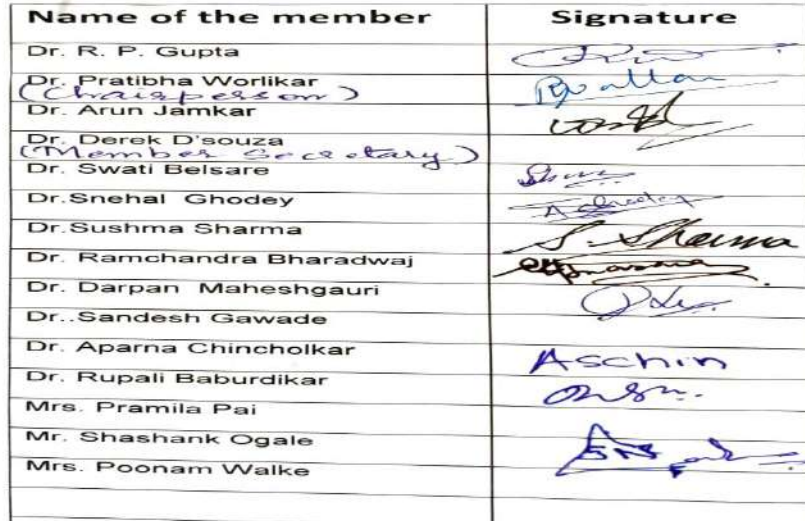 Name of the member Signature
Dr. R. P. Gupta
Dr. Pratibha Worlikar
(Chairperson)
Dr. Arun Jamkar
Dr. Derek D'souza
(Member Secretary)
Dr. Swati Belsare
Dr.Snehal Ghodey
Dr.Sushma Sharma S. Sharma
Dr. Ramchandra Bharadwaj
Dr. Darpan Maheshgauri
Dr..Sandesh Gawade
Dr. Aparna Chincholkar Aschin
Dr. Rupali Baburdikar
Mrs. Pramila Pai
Mr. Shashank Ogale
Mrs. Poonam Walke